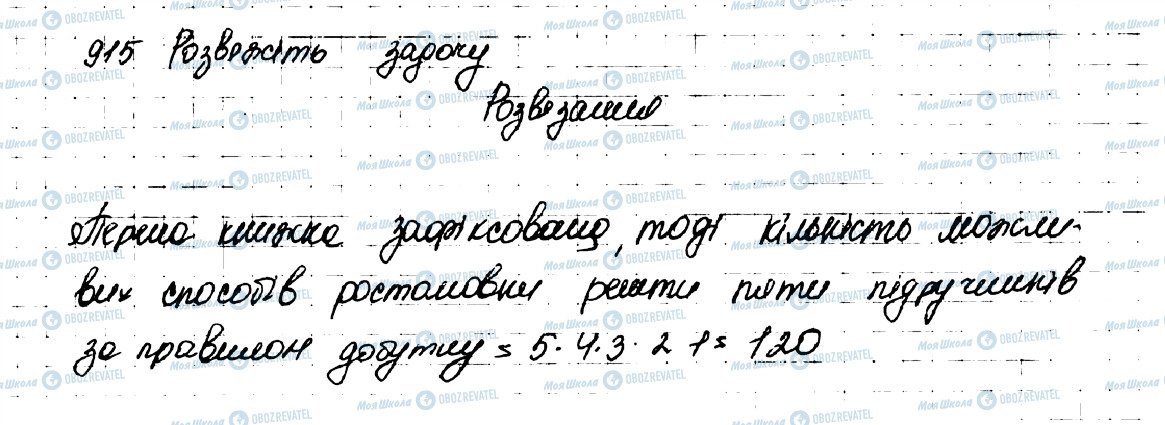 915 Розвежіть задочу
Розвезання
Перша книжка зафіксована, тоді кількість можли-
вих способів ростановки решти пяти підручників
за правилом добутку = 5·4·3·2 1 = 120